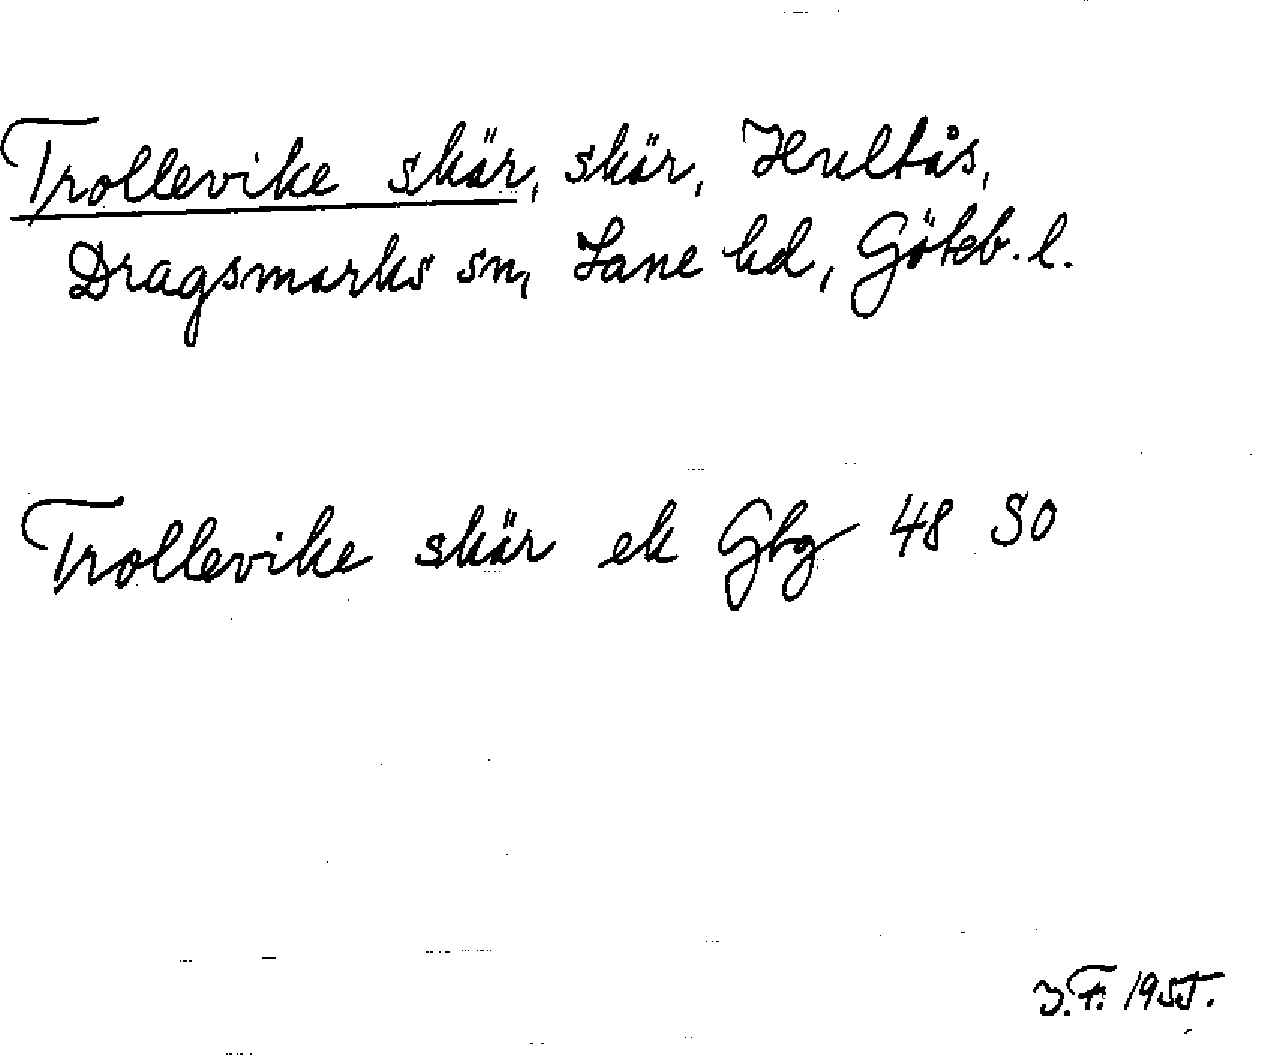 Trollevike skär, skär, Hultås,
Dragsmarks sn, Lane hd, Göteb. l.
Trollevike skär ek Gbg 48 SO
J.F. 1955.